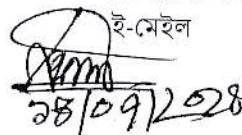 ই-মেইল
১৪/০৭/২০২৪